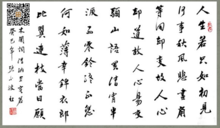 人生若只如初見
何事秋風悲畫扇
等閒變卻故人心
卻道故人心易變
驪山語罷清宵半
淚雨零鈴終不怨
何如薄倖錦衣郎
比翼連枝當日願